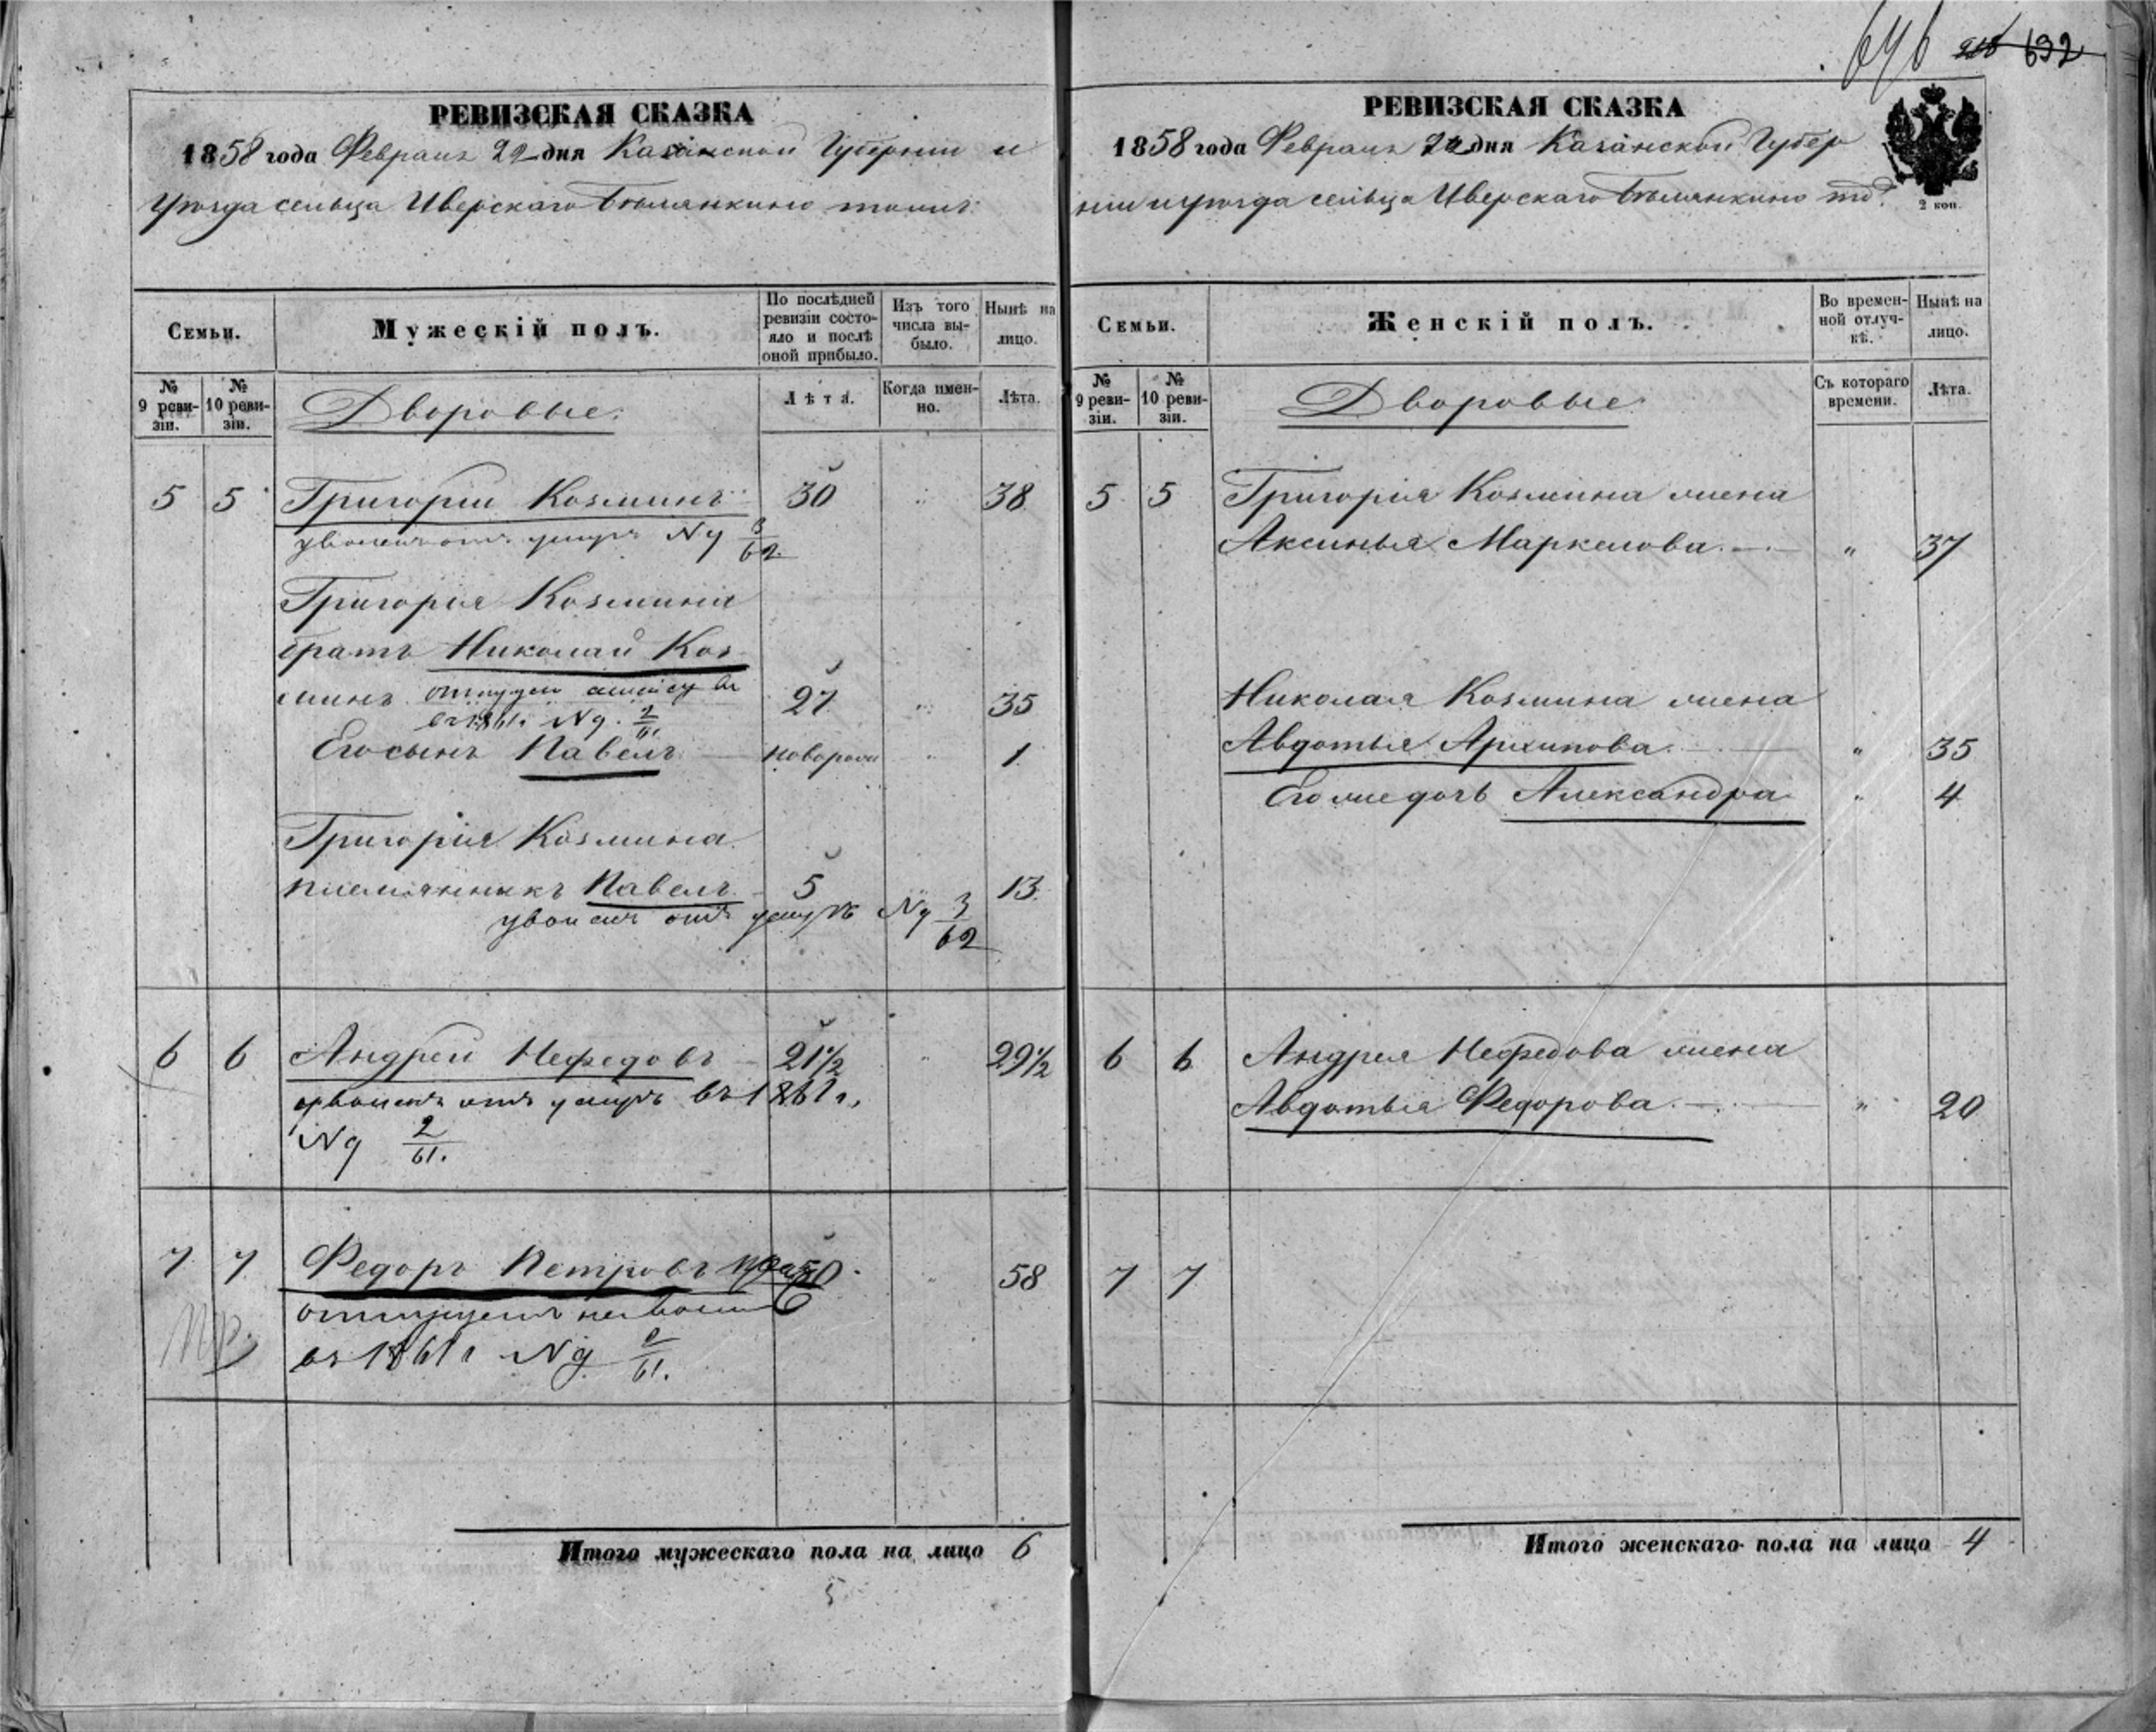 646 632
РЕВИЗСКАЯ СКАЗКА
1858 года Февраля 22 дня Казанской Губернии и
уѣзда сельца Иверскаго Бѣлянкино тожъ:
Семьи.
Мужескій полъ.
По послѣдней ревизіи состояло и послѣ оной прибыло.
Изъ того числа выбыло.
Нынѣ на лицо.
№ 9 ревизіи.
№ 10 ревизіи.
Дворовые.
Лѣта.
Когда именно.
Лѣта.
5 5 Григорій Козминъ 30 " 38
уволенъ отъ N 9 3/62
Григорія Козмина
братъ Николай Коз
минъ 27 " 35
въ 1861 г N 9. 2/61.
Его сынъ Павелъ — новорожд " 1
Григорія Козмина
племянникъ Павелъ 5 13
уволенъ отъ N 9 3/62
6 6 Андрей Нефедовъ 21½ " 29½
уволенъ отъ въ 1861 г.
N 9 2/61.
7 7 Федоръ Петровъ 50 " 58
отпущенъ на волю
въ 1861 г N 9 2/61.
Итого мужескаго пола на лицо 6
5
РЕВИЗСКАЯ СКАЗКА
1858 года Февраля 22 дня Казанской Губер
ніи и уѣзда сельца Иверскаго Бѣлянкино то.
2 коп.
Семьи.
Женскій полъ.
Во временной отлучкѣ.
Нынѣ на лицо.
№ 9 ревизіи.
№ 10 ревизіи.
Дворовые
Съ котораго времени.
Лѣта.
5 5 Григорія Козмина жена
Аксинья Маркелова. — " 37
Николая Козмина жена
Авдотья Архипова. " 35
Его же дочь Александра " 4
6 6 Андрея Нефедова жена
Авдотья Федорова. — " 20
7 7
Итого женскаго пола на лицо 4